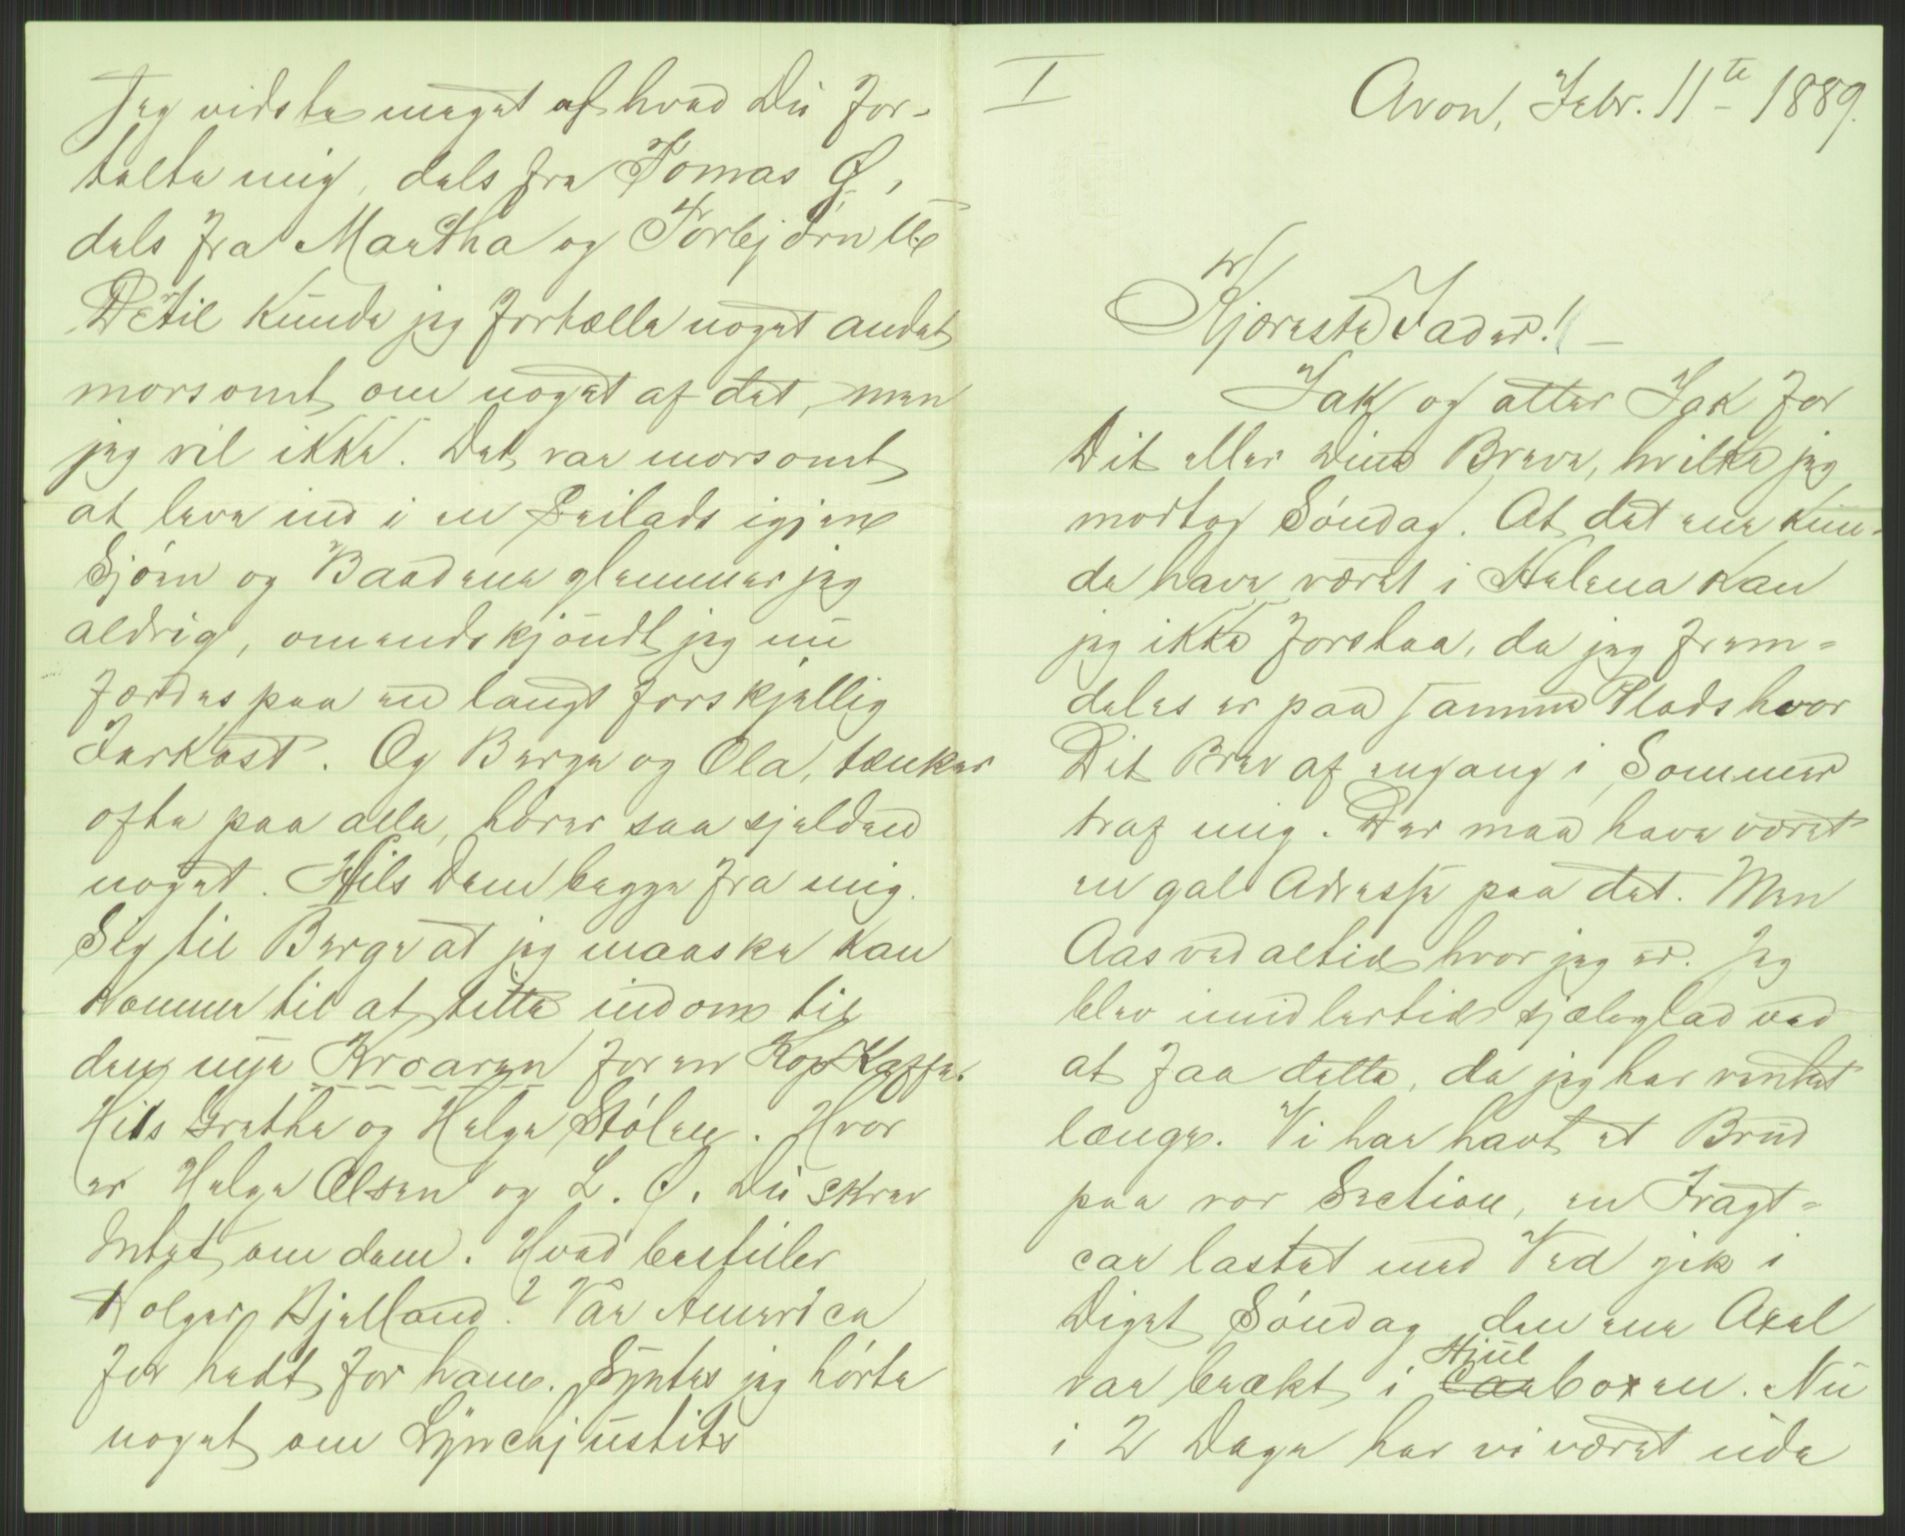 I
Avon, Febr. 11te 1889.
Kjæreste Fader! –
Tak og atter Tak for
Dit eller Dine Breve, hvilke jeg
modtog Søndag. At det ene kun-
de have været i Helena kan
jeg ikke forstaa, da jeg frem-
deles er paa samme Plads hvor
Dit Brev af engang i Sommer
traf mig. Der maa have været
en gal Adresse paa det. Men
Aas ved altid hvor jeg er. Jeg
blev imidlertid sjæleglad ved
at faa dette, da jeg har ventet
længe. Vi har havt et Brud
paa vor Section, en Fragt-
car lastet med Ved gik i
Diget Søndag den ene Axel
var brækt i Hjul carboxen. Nu
i 2 Dage har vi været ude
Jeg vidste meget af hvad Du for-
talte mig, dels fra Tomas Ø,
dels fra Martha og Torbjørn etc
Dertil kunde jeg fortælle noget andet
morsomt om noget af det, men
jeg vil ikke. Det var morsomt
at leve ind i en Seilads igjen
Sjøen og Baadene glemmer jeg
aldrig, omendskjøndt jeg nu
færdes paa en langt forskjellig
Farkost. Og Berge og Ola, tænker
ofte paa alle, hører saa sjelden
noget. Hils dem begge fra mig.
Sig til Berge at jeg maaske kan
komme til at titte indom til
den nye Kroaren for en Kop Kaffe.
Hils Grethe og Helge Stølen. Hvor
er Helge Olsen og L. O. Du skrev
Intet om dem. Hvad bestiller
Holger Bjelland? Var America
for hedt for ham. Syntes jeg hørte
noget om Lynchjustits